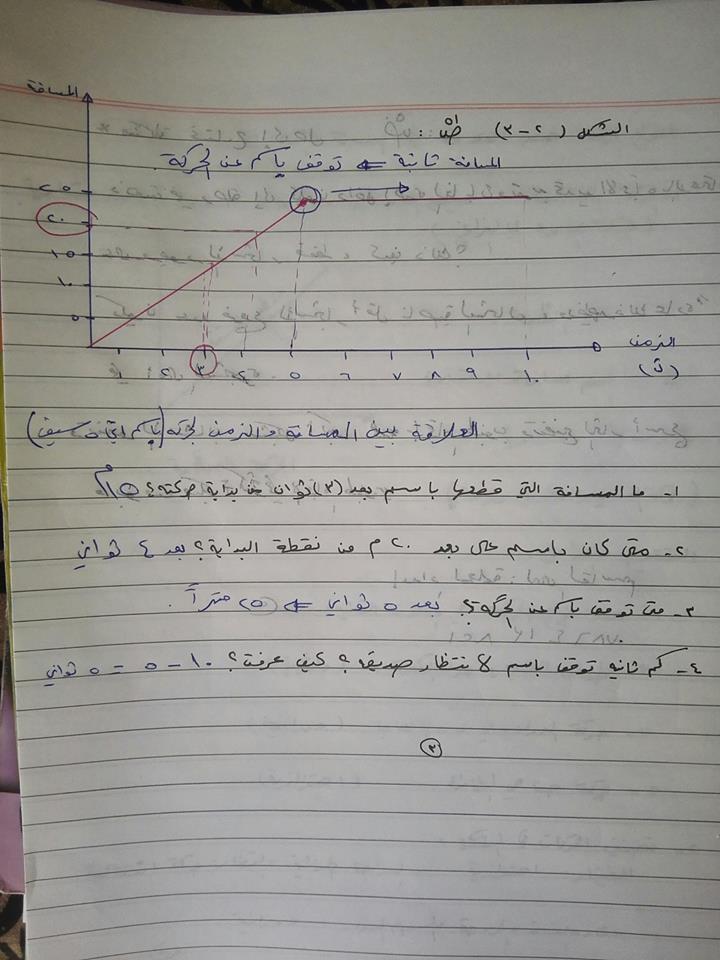 المسافة
الشكل (٢-٣) ص
المسافة ثابتة ⇐ توقف باسم عن الحركة.
٢٥
٢٠
١٥
١٠
٥
١ ٢ ٣ ٤ ٥ ٦ ٧ ٨ ٩ ١٠
الزمن
(ث)
العلاقة بين المسافة والزمن لحركة (باسم
١- ما المسافة التي قطعها باسم بعد (٣) ثوان من بداية حركته؟ ١٥م
٢- متى كان باسم على بعد ٢٠ م من نقطة البداية؟ بعد ٤ ثواني
٣- متى توقف باسم عن الحركة؟ بعد ٥ ثواني ⇐ (٢٥) متراً.
٤- كم ثانية توقف باسم لانتظار صديقه؟ كيف عرفت؟ ١٠ - ٥ = ٥ ثواني
٣